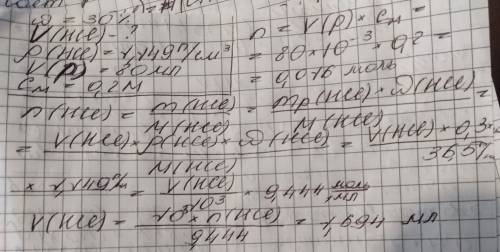 ω = 30%
V(HCl) - ?
ρ(HCl) = 1,149 г/см³
V(р) = 80 мл
См = 0,2 М
n = V(р) × См =
= 80 × 10⁻³ × 0,2 =
= 0,016 моль
n(HCl) = m(HCl) / M(HCl) = mр(HCl) × ω(HCl) / M(HCl) =
= V(HCl) × ρ(HCl) × ω(HCl) / M(HCl) = V(HCl) × 0,3 × / 36,5 г/м
× 1,149 г/м = V(HCl) / 10³ × 9,444 моль/мл
V(HCl) = 10³ × n(HCl) / 9,444 = 1,694 мл